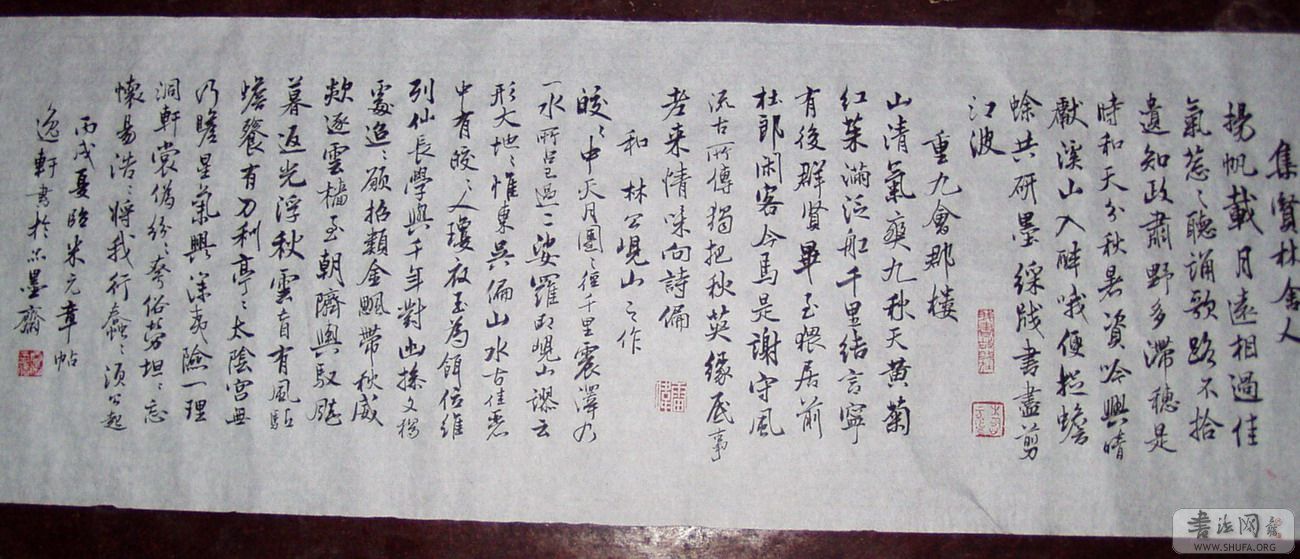 集賢林舍人
揚帆載月遠相過佳
氣蔥〻聽誦歌路不拾
遺知政肅野多滯穗是
時和天分秋暑資吟興晴
獻溪山入醉哦便捉蟾
蜍共研墨綵牋書盡剪
江波
重九會郡樓
山清氣爽九秋天黃菊
紅茱滿泛船千里結言寧
有後群賢畢至猥居前
杜郎閑客今焉是謝守風
流古所傳獨把秋英緣底事
老来情味向詩偏
和林公峴山之作
皎〻中天月團〻徑千里震澤乃
一水所占已過二娑羅即峴山謬云
形大地〻惟東吳偏山水古佳麗
中有皎〻人瓊衣玉為餌位維
列仙長學與千年對幽操久獨
處迢〻願招類金颸帶秋威
欻逐雲檣至朝隮輿馭飈
暮返光浮秋雲育有風駘
蟾餮有刀利亭〻太陰宮無
乃瞻星氣興深夷險一理
洞軒裳偽紛〻夸俗勞坦〻忘
懷易浩〻將我行蠢〻須公起
丙戌夏臨米元章帖
逸軒書於
墨齋
書法网
WWW.SHUFA.ORG